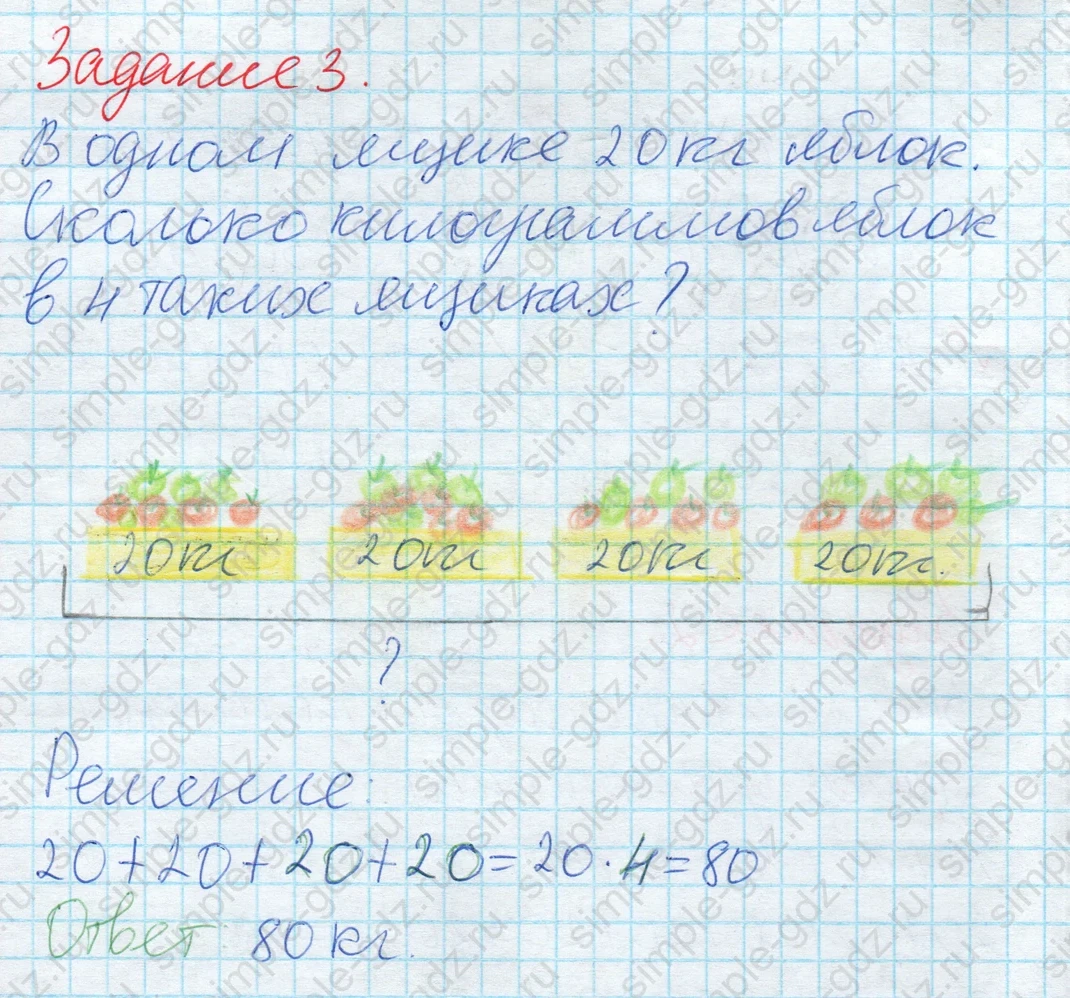 Задание 3.
В одном ящике 20 кг яблок.
Сколько килограммов яблок
в 4 таких ящиках?
20 кг 20 кг 20 кг 20 кг.
?
Решение:
20+20+20+20=20·4=80
Ответ 80 кг.
simple-gdz.ru